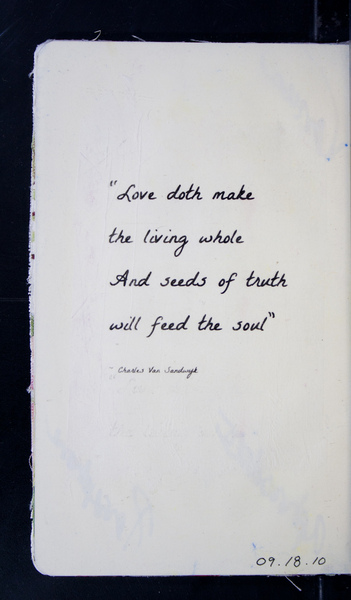 "Love doth make
the living whole
And seeds of truth
will feed the soul"
- Charles Van Sandwyk
09.18.10